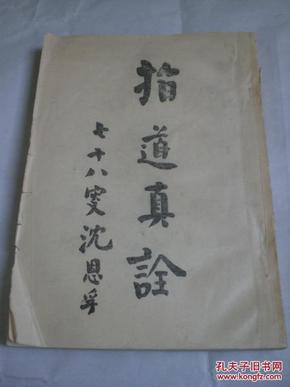 指道真詮
七十八叟沈恩孚
孔夫子旧书网